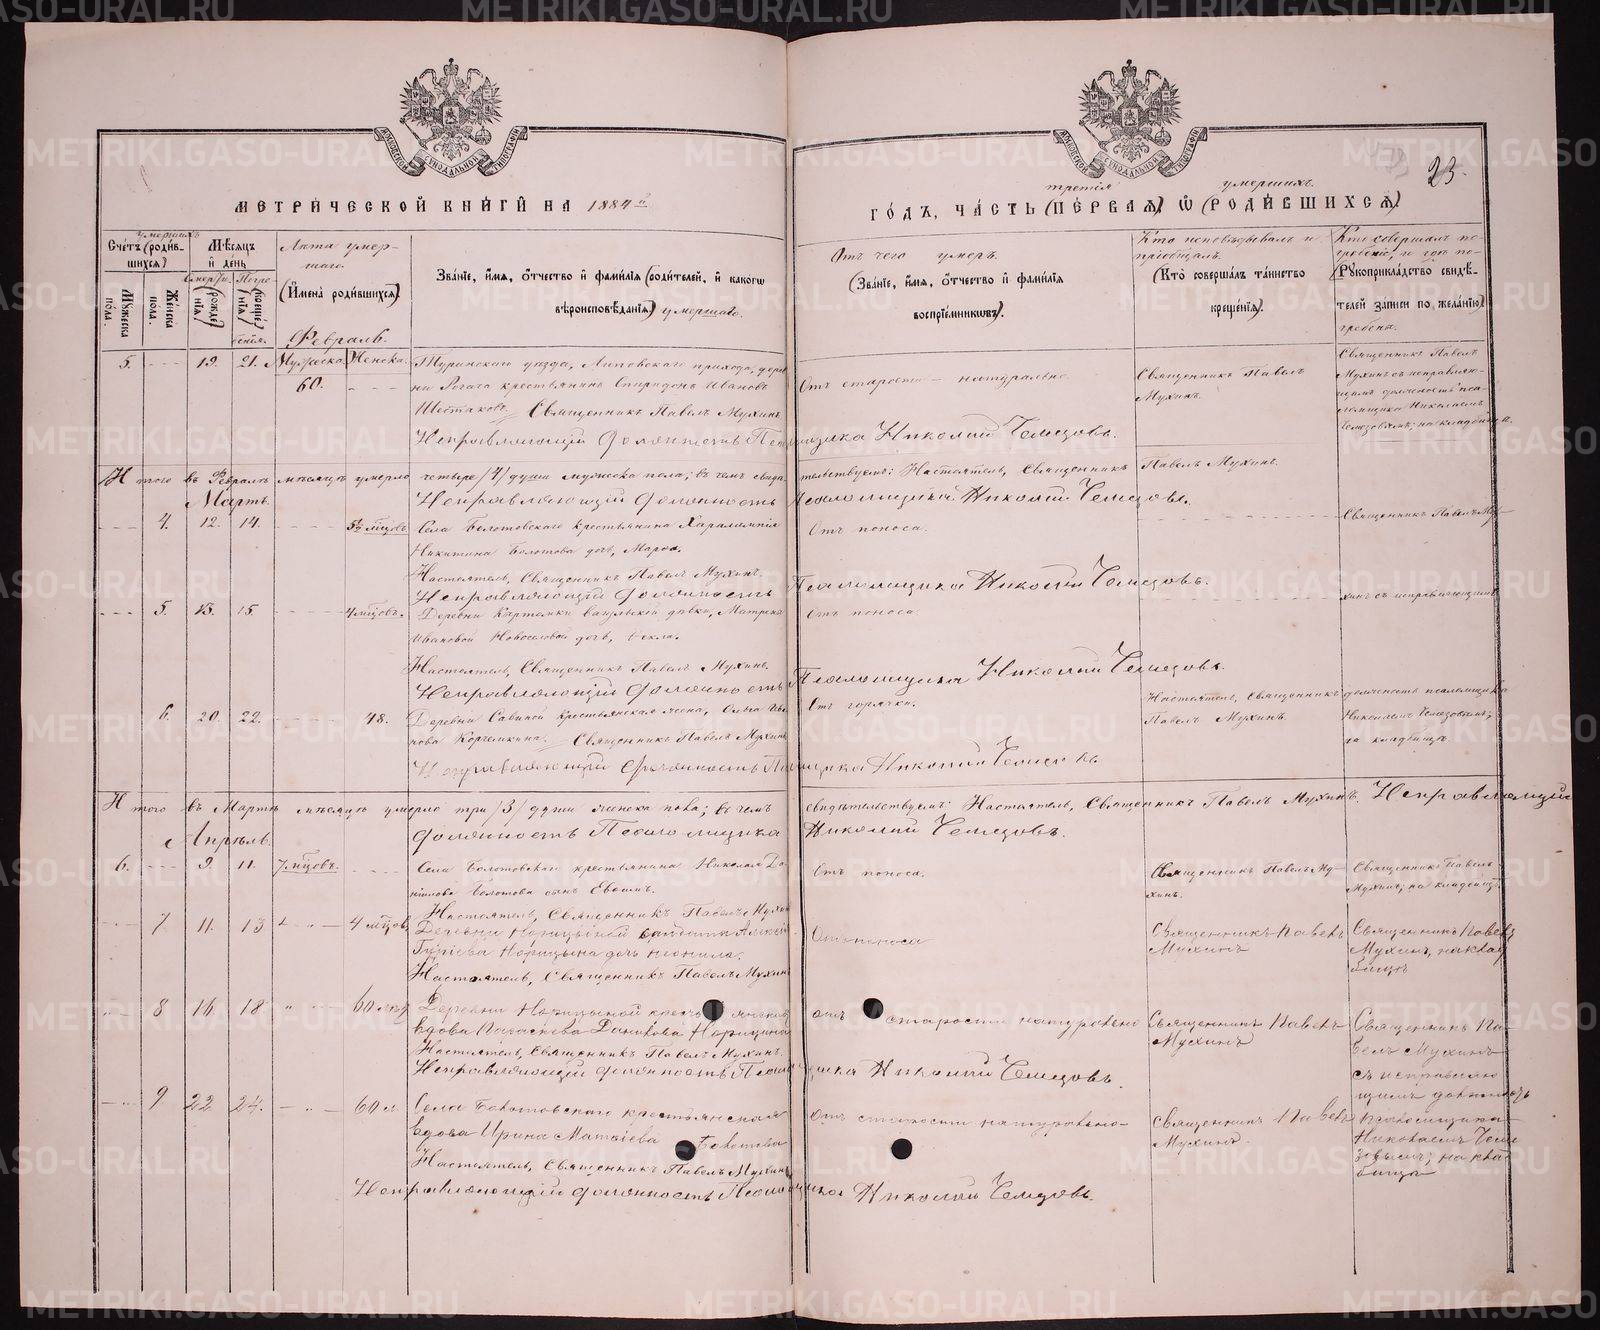 METRIKI.GASO-URAL.RU
МОСКОВСКОЙ СѴНОДАЛЬНОЙ ТИПОГРАФІИ
МОСКОВСКОЙ СѴНОДАЛЬНОЙ ТИПОГРАФІИ
23.
третія умершихъ.
МЕТРИЧЕСКОЙ КНИГИ НА 1884й
ГОДЪ, ЧАСТЬ (ПЕРВАЯ) Ѡ (РОДИВШИХСЯ)
умершихъ
Счетъ (родив-
шихся)
Мужеска пола.
Женска пола.
Мѣсяцъ
и день
(рожде
нія)
(креще
нія)
Лѣта умер-
шаго.
(Имена родившихся)
Званіе, имя, отчество и фамилія (родителей, и какогѡ
вѣроисповѣданія) умершаго.
Отъ чего умеръ.
(Званіе, имя, отчество и фамилія
воспріемниковъ).
Кто исповѣдывалъ и
пріобщалъ.
(Кто совершалъ таинство
крещенія).
Кто совершалъ по-
гребеніе, и гдѣ по-
(Рукоприкладство свидѣ-
телей записи по желанію)
гребены.
Февраль.
5. 19. 21. Мужеска. Женска.
60.
Туринскаго уѣзда, Липовскаго прихода, дерев
ни крестьянинъ Спиридонъ Ивановъ
Шестаковъ. Священникъ Павелъ Мухинъ.
Исправляющій должность Псаломщика Николай Чемезовъ.
Отъ старости – натурально.
Священникъ Павелъ
Мухинъ.
Священникъ Павелъ
Мухинъ съ исправляю-
щимъ должность пса-
ломщика Николаемъ
Чемезовымъ; на кладбищѣ.
Итого въ Февралѣ мѣсяцѣ умерло четыре /4/ души мужеска пола; въ чемъ свидѣтельствуемъ: Настоятель, Священникъ Павелъ Мухинъ.
Исправляющій должность Псаломщика Николай Чемезовъ.
Мартъ.
4. 12. 14. 5½ мѣцовъ.
Села Болотовскаго крестьянина Харалампія
Никитина Болотова дочь, Марѳа.
Отъ поноса.
Священникъ Павелъ Му-
Настоятель, Священникъ Павелъ Мухинъ.
Исправляющій должность Псаломщика Николай Чемезовъ.
5. 13. 15. 4 мѣцовъ.
Деревни дѣвки, Матрены
Ивановой Новоселовой дочь, Ѳекла.
Отъ поноса.
хинъ съ исправляющимъ
Настоятель, Священникъ Павелъ Мухинъ.
Исправляющій должность Псаломщика Николай Чемезовъ.
6. 20. 22. 48.
Деревни Савиной крестьянская жена, Ольга Ива
нова Коргемкина. Священникъ Павелъ Мухинъ
Исправляющій должность Псаломщика Николай Чемезовъ.
Отъ горячки.
Настоятель, Священникъ
Павелъ Мухинъ.
должность псаломщика
Николаемъ Чемезовымъ;
на кладбищѣ.
Итого въ Мартѣ мѣсяцѣ умерло три /3/ души женска пола; въ чемъ свидѣтельствуемъ: Настоятель, Священникъ Павелъ Мухинъ. Исправляющій
должность Псаломщика Николай Чемезовъ.
Апрѣль.
6. 9. 11. 7 мѣцовъ.
Села Болотовскаго крестьянина Николая Да-
нилова Болотова сынъ Евѳимъ.
Отъ поноса.
Священникъ Павелъ Му-
хинъ.
Священникъ Павелъ
Мухинъ; на кладбищѣ.
Настоятель, Священникъ Павелъ Мухинъ
7 11. 13 4 мѣцов
Деревни Нарицыной солдата Алексѣя
Гурьева Нарицына дочь Неонила.
Отъ поноса
Священникъ Павелъ
Мухинъ
Священникъ Павелъ
Мухинъ, на клад
бищѣ
Настоятель, Священникъ Павелъ Мухинъ
8 16 18 60 лѣт
Деревни Нарицыной крестьянская
вдова Данилова Нарицына
отъ старости натурально
Священникъ Павелъ
Мухинъ
Священникъ Па-
велъ Мухинъ
съ исправляю
щимъ должность
Настоятель, Священникъ Павелъ Мухинъ.
Исправляющій должность Псаломщика Николай Чемезовъ.
9 22 24. 60 л.
Села Болотовскаго крестьянская
вдова Ирина Матѳіева Болотова
отъ старости натурально
Священникъ Павелъ
Мухинъ.
псаломщика
Николаемъ Чеме
зовымъ; на клад
бищѣ
Настоятель, Священникъ Павелъ Мухинъ
Исправляющій должность Псаломщика Николай Чемезовъ.